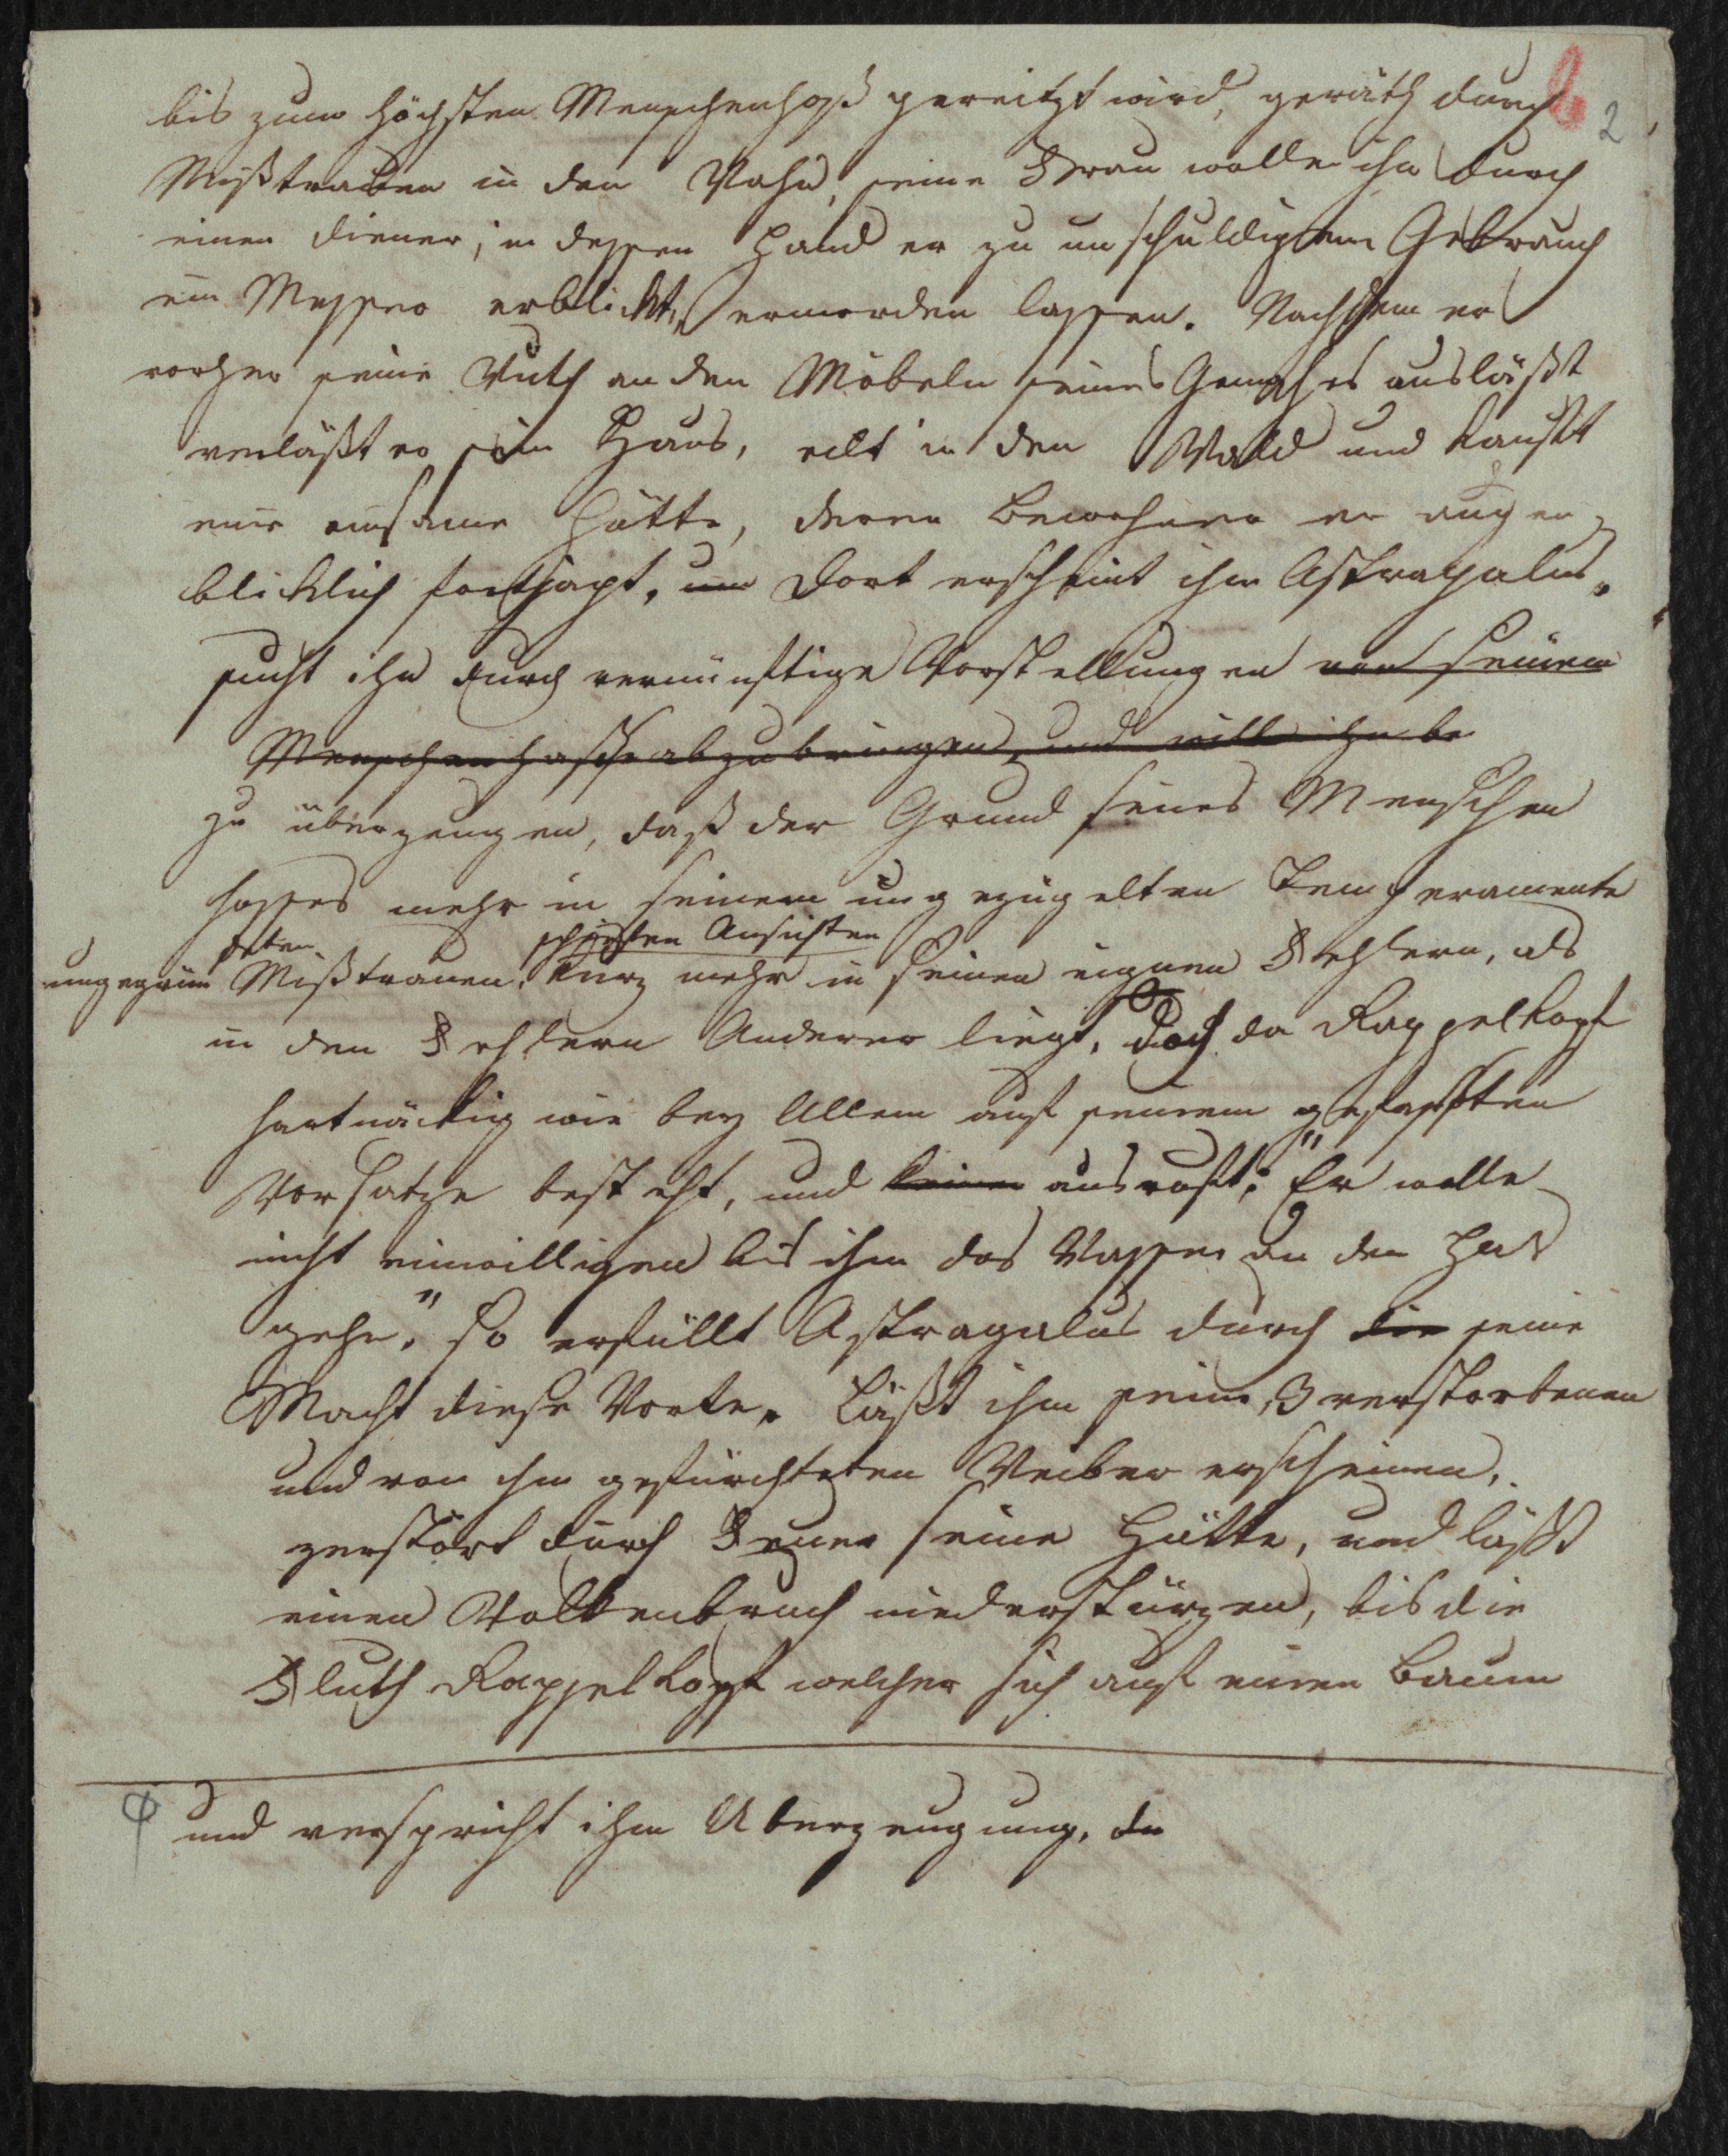 b 2
bis zum höchsten Menschenhaß gereitzt wird, geräth durch
Mißtrauen in den Wahn, seine Frau wolle ihn durch
einen Diener, in dessen Hand er zu unschuldigem Gebrauch
ein Messer erblickt, ermorden lassen. Nachdem er
vorher seine Wuth an den Möbeln seines Gemaches ausläßt
verläßt er sein Haus, eilt in den Wald und kauft
eine einsame Hütte, deren Bewohner er augen
blicklich fortjagt, um Dort erscheint ihm Astragalus,
sucht ihn durch vernünftige Vorstellungen von seinem
Menschenhasse abzubringen, und will ihn be
zu überzeugen, daß der Grund seines Menschen
hasses mehr in seinem ungezügelten Temperamente
deten schiefen Ansichten
ungegrün Mißtrauen, kurz mehr in seinen eignen Fehlern, als
in den Fehlern Anderer liegt, Doch da Rappelkopf
hartnäckig wie bey Allem auf seinem gefaßten
Vorsatze besteht, und ausruft: "Er wolle
nicht einwilligen bis ihm das Wasser an den Hals
gehe," so erfüllt Astragalus durch die seine
Macht diese Worte. Läßt ihm seine 3 verstorbenen
und von ihm gefürchteten Weiber erscheinen,
zerstört durch Feuer seine Hütte, und läßt
einen Wolkenbruch niederstürzen, bis die
Fluth Rappelkopf welcher sich auf einen Baum
und verspricht ihm Uberzeugung, da